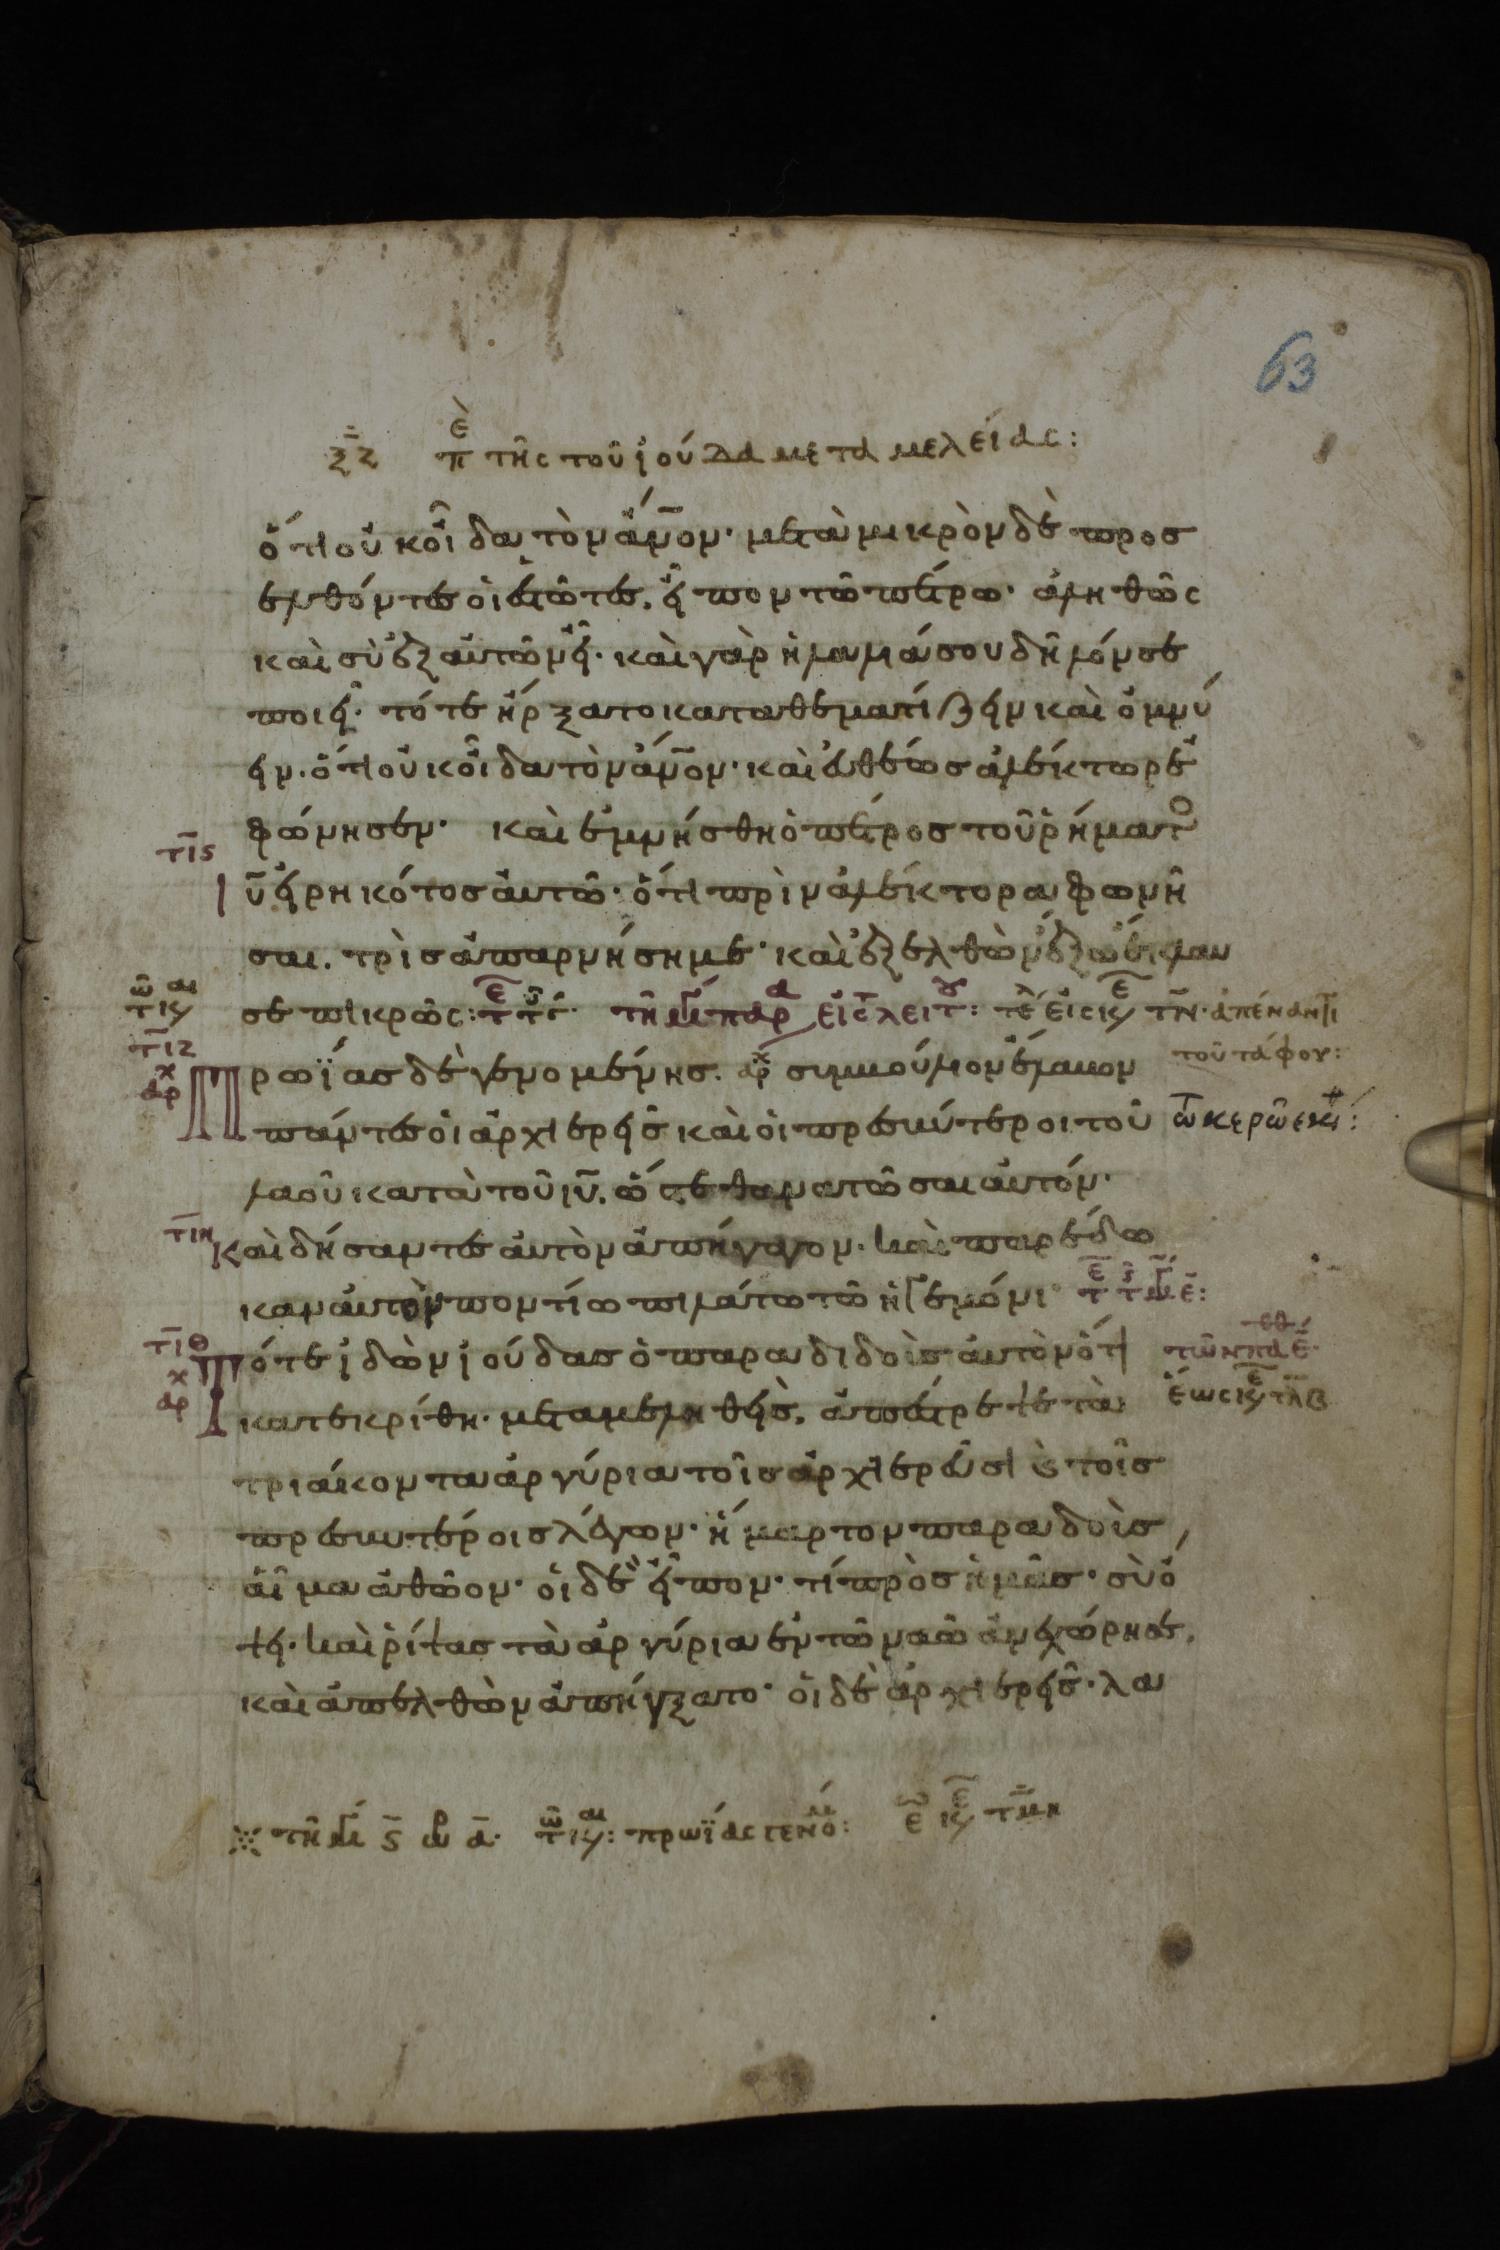 63
ξζ πε τῆς τοῦ ἰούδα μεταμελείας:
ὅτι οὐκ οἶδα τὸν ἄνον· μετὰ μικρὸν δὲ προσ
ελθόντες οἱ ἑστῶτες, εἶπον τῶ πέτρω· ἀληθῶς
καὶ σὺ ἐξ αὐτῶν εἶ· καὶ γὰρ ἡ λαλιά σου δῆλόν σε
ποιεῖ· τότε ἤρξατο καταθεματίζειν καὶ ὀμνύ
ειν· ὅτι οὐκ οἶδα τὸν ἄνον· καὶ εὐθέως ἀλέκτωρ ἐ
φώνησεν· καὶ ἐμνήσθη ὁ πέτρος τοῦ ῥήματο
τις
ιῦ εἰρηκότος αὐτῶ· ὅτι πρὶν ἀλέκτορα φωνῆ
σαι, τρὶς ἀπαρνήση με· καὶ ἐξελθὼν ἔξω ἔκλαυ
σε πικρῶς:
τιζ
αρχ Πρωΐας δὲ γενομένης, συμβούλιον ἔλαβον
τοῦ τάφου:
πάντες οἱ ἀρχιερεῖς καὶ οἱ πρεσβύτεροι τοῦ
λαοῦ κατὰ τοῦ ιυ, ὥστε θανατῶσαι αὐτόν·
τιη
Καὶ δήσαντες αὐτὸν ἀπήγαγον· καὶ παρέδω
καν αὐτὸν ποντίω πιλάτω τῶ ἡγεμόνι
τιθ
αρχ Τότε ἰδὼν ἰούδας ὁ παραδιδοὺς αὐτὸν ὅτι
κατεκρίθη· μεταμεληθεὶς, ἀπέστρεψε τὰ
τριάκοντα ἀργύρια τοῖς ἀρχιερεῦσι καὶ τοῖς
πρεσβυτέροις λέγων· ἥμαρτον παραδοὺς
αἷμα ἀθῶον· οἱ δὲ εἶπον· τί πρὸς ἡμᾶς· σὺ ὄ
ψει· καὶ ῥίψας τὰ ἀργύρια ἐν τῶ ναῶ ἀνεχώρησε,
καὶ ἀπελθὼν ἀπήγξατο· οἱ δὲ ἀρχιερεῖς· λα